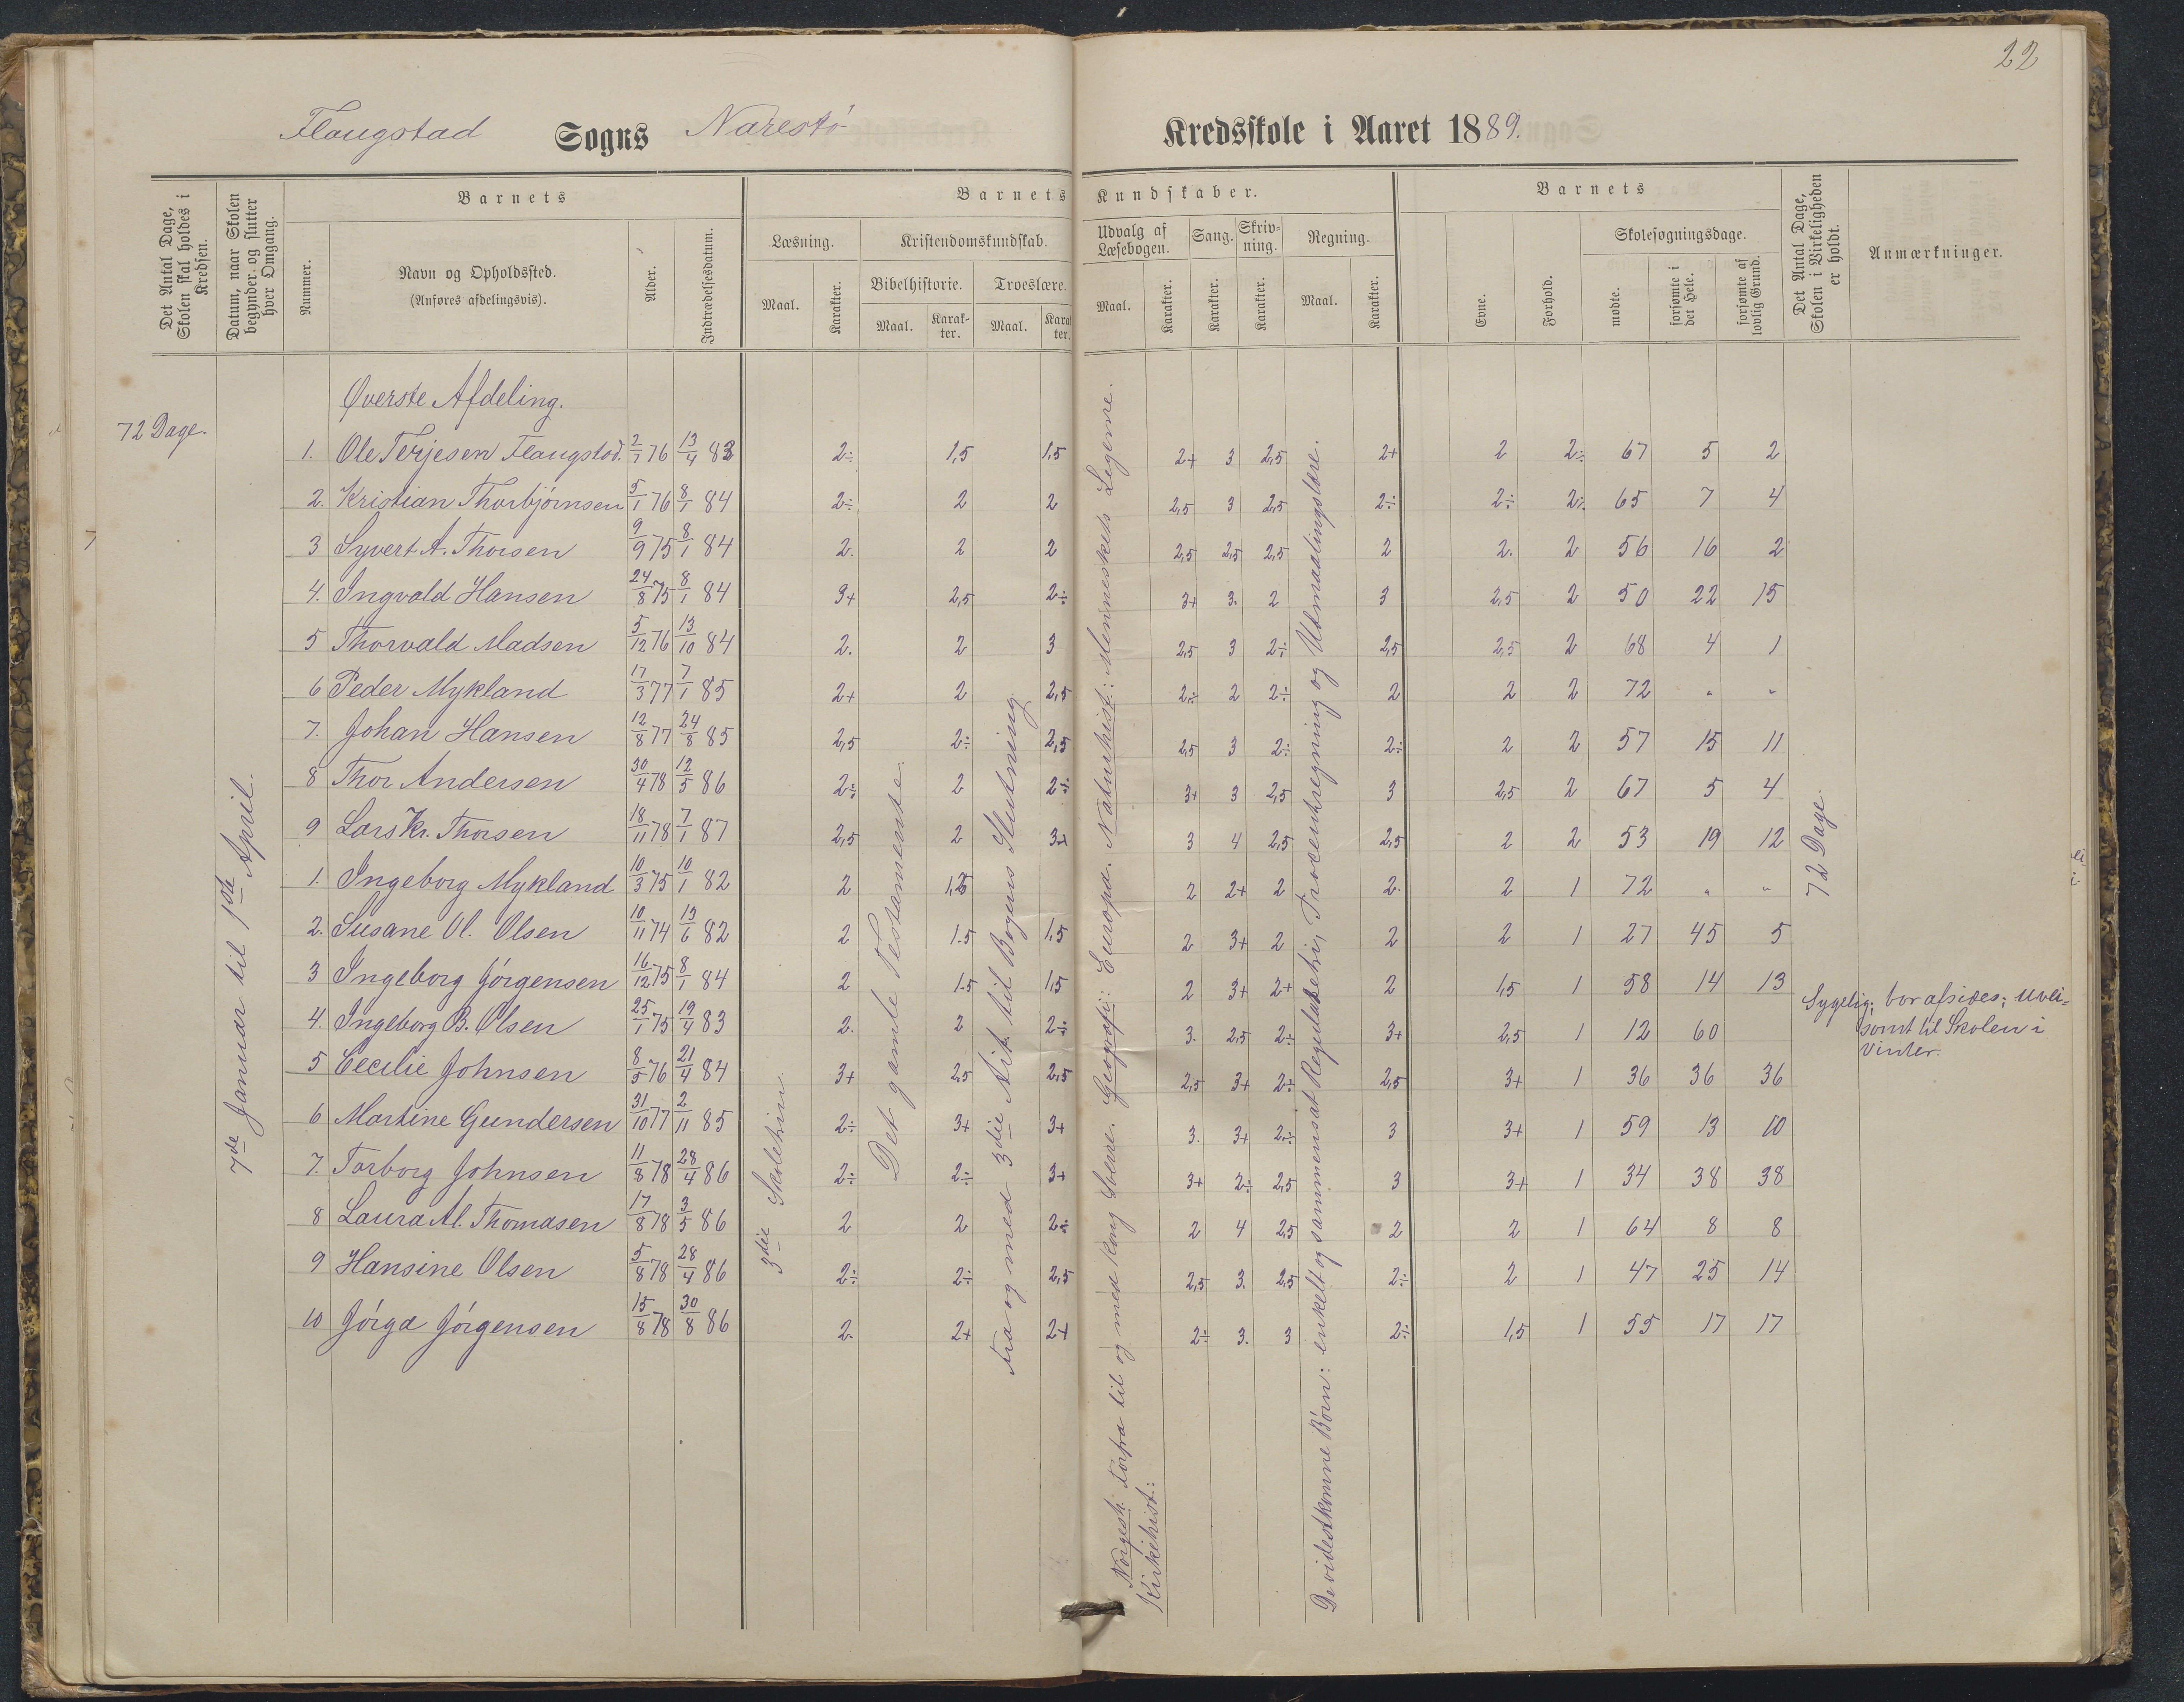 22
Flaugstad Sogns Narestø Kredsskole i Aaret 1889.
Det Antal Dage, Skolen skal holdes i Kredsen.
Datum, naar Skolen begynder og slutter hver Omgang.
Nummer.
Barnets
Navn og Opholdssted.
(Anføres afdelingsvis).
Alder.
Indtrædelsesdatum.
Barnets Kundskaber.
Læsning.
Maal.
Karakter.
Kristendomskundskab.
Bibelhistorie.
Maal.
Karakter.
Troeslære.
Maal.
Karakter.
Udvalg af Læsebogen.
Maal.
Karakter.
Sang.
Karakter.
Skrivning.
Karakter.
Regning.
Maal.
Karakter.
Barnets
Evne.
Forhold.
Skolesøgningsdage.
mødte.
forsømte i det Hele.
forsømte af lovlig Grund.
Det Antal Dage, Skolen i Virkeligheden er holdt.
Anmærkninger.
Øverste Afdeling.
72 Dage.
7de Januar til 1ste April.
1. Ole Terjesen Flaugstad. 2/7 76 13/4 83 2÷ 1,5 1,5 2+ 3 2,5 2+ 2 2÷ 67 5 2
2. Kristian Thorbjørnsen 5/1 76 8/1 84 2÷ 2 2 2,5 3 2,5 2÷ 2÷ 2÷ 65 7 4
3 Syvert A. Thorsen 9/9 75 8/1 84 2. 2 2 2,5 2,5 2,5 2 2. 2 56 16 2
4. Ingvald Hansen 24/8 75 8/1 84 3+ 2,5 2÷ 3+ 3. 2 3 2,5 2 50 22 15
5 Thorvald Madsen 5/12 76 13/10 84 2. 2 3 2,5 3 2÷ 2,5 2,5 2 68 4 1
6 Peder Mykland 17/3 77 7/1 85 2+ 2 2,5 2÷ 2 2÷ 2 2 2 72 " "
7. Johan Hansen 12/8 77 24/8 85 2,5 2÷ 2,5 2,5 3 2÷ 2÷ 2 2 57 15 11
8 Thor Andersen 30/4 78 12/5 86 2÷ 2 2÷ 3+ 3 2,5 3 2,5 2 67 5 4
9 Lars Kr. Thorsen 18/11 78 7/1 87 2,5 2 3+ 3 4 2,5 2,5 2 2 53 19 12
1. Ingeborg Mykland 10/3 75 10/1 82 2 1,5 2 2+ 2 2. 2 1 72 " "
2. Susane Ol. Olsen 10/11 74 15/6 82 2 1.5 1,5 2 3+ 2 2 2 1 27 45 5
3 Ingeborg Jørgensen 16/12 75 8/1 84 2 1.5 1,5 2 3+ 2+ 2 1,5 1 58 14 13
4. Ingeborg B. Olsen 25/1 75 19/4 83 2. 2 2÷ 3. 2,5 2÷ 3+ 2,5 1 12 60 Sygelig; bor afsides; uveisomt til Skolen i Vinter.
5 Cecilie Johnsen 8/5 76 21/4 84 3+ 2,5 2,5 2,5 3+ 2÷ 2,5 3+ 1 36 36 36
6 Martine Gundersen 31/10 77 2/11 85 2÷ 3+ 3+ 3. 3+ 2÷ 3 3+ 1 59 13 10
7. Torborg Johnsen 11/8 78 28/4 86 2÷ 2÷ 3+ 3+ 2÷ 2,5 3 3+ 1 34 38 38
8 Laura Al. Thomasen 17/8 78 3/5 86 2 2 2÷ 2 4 2,5 2 2 1 64 8 8
9 Hansine Olsen 5/8 78 28/4 86 2÷ 2÷ 2,5 2,5 3. 2,5 2÷ 2 1 47 25 14
10 Jörga Jørgensen 15/8 78 30/8 86 2. 2+ 2+ 2÷ 3. 3 2÷ 1,5 1 55 17 17
3die Skoletrin.
Det gamle Testamente.
Fra og med 3die Art. til Bogens Slutning
Norgesh. forfra til og med Kong Sverre. Geografi: Europa. Naturhist: Menneskets Legeme.
Kirkehist:
De videstkomne Børn: enkelt og sammensat Reguladetri, Procentregning og Udmaalingslære.
72 Dage.